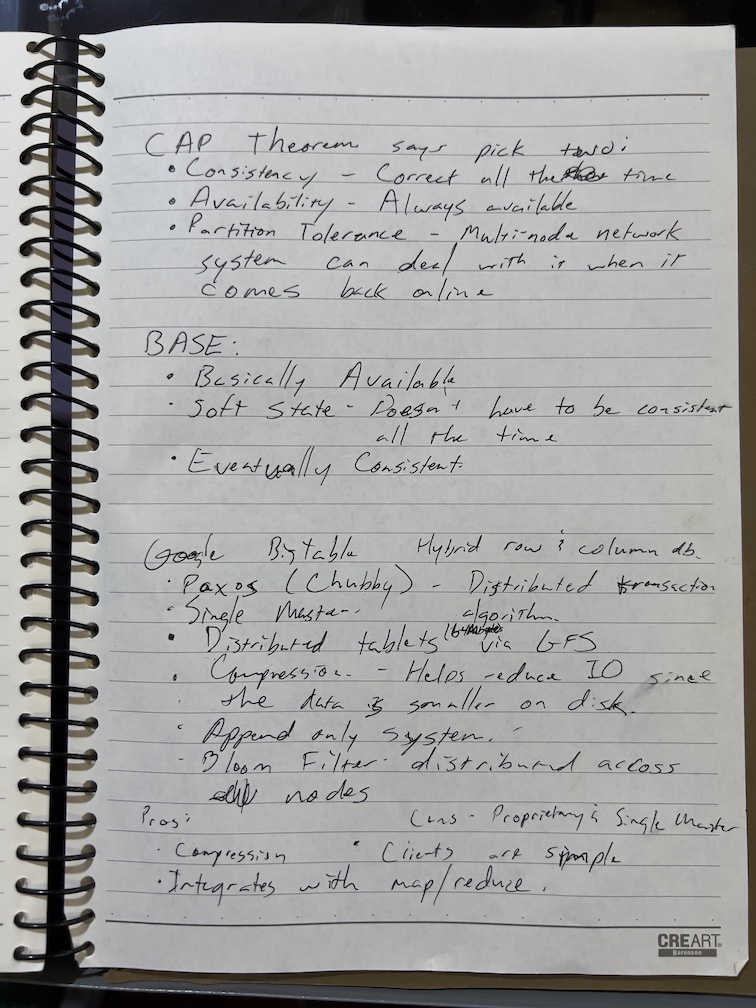 CAP Theorem says pick two:
• Consistency - Correct all the time
• Availability - Always available
• Partition Tolerance - Multi-node network
system can deal with it when it
comes back online
BASE:
• Basically Available
• Soft State - Doesn't have to be consistent
all the time
• Eventually Consistent.
Google Bigtable Hybrid row & column db.
• Paxos (Chubby) - Distributed transaction
algorithm.
• Single Master.
• Distributed tablets via GFS
• Compression. - Helps reduce IO since
the data is smaller on disk.
• Append only system.
- Bloom Filter - distributed across
nodes
Pros: Cons - Proprietary & Single Master
• Compression • Clients are simple
• Integrates with map/reduce.
CREART